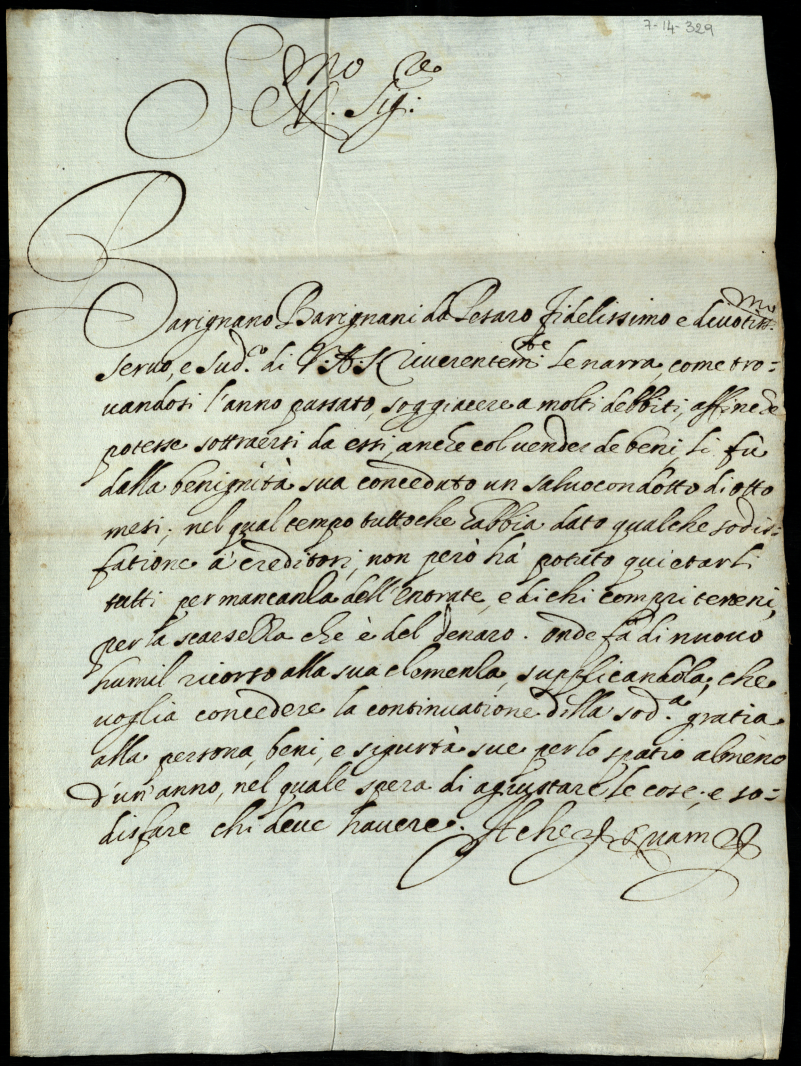 7-14-329
Ser.mo Sig.re
Barignano Barignani da Pesaro fidelissimo e divotiss.mo
servo, e sud.o di V.A.S. riverentem.te le narra, come tro=
vandosi l'anno passato, soggiacere a molti debbiti, affine che
potesse sottraersi da essi, anche col vender de beni, li fù
dalla benignità sua conceduto un salvocondotto di otto
mesi; nel qual tempo tuttoche habbia dato qualche sodis=
fatione a' creditori, non però hà potuto quietarli
tutti per mancanza dell'entrate, e di chi compri terreni,
per la scarsezza che è del denaro. Onde fà di nuovo
humil ricorso alla sua clemenza, supplicandola, che
voglia concedere la continuatione della sod.a gratia
alla persona, beni, e sigurtà sue per lo spatio almeno
d'un'anno, nel quale spera di agiustare le cose, e so=
disfare chi deve havere. Il che
quam